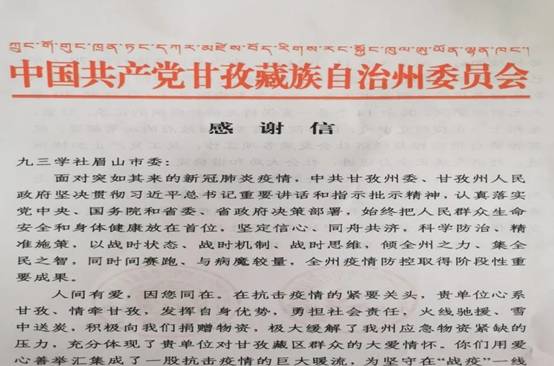 中国共产党甘孜藏族自治州委员会
感 谢 信
九三学社眉山市委：
面对突如其来的新冠肺炎疫情，中共甘孜州委、甘孜州人民
政府坚决贯彻习近平总书记重要讲话和指示批示精神，认真落实
党中央、国务院和省委、省政府决策部署，始终把人民群众生命
安全和身体健康放在首位，坚定信心、同舟共济，科学防治、精
准施策，以战时状态、战时机制、战时思维，倾全州之力、集全
民之智，同时间赛跑、与病魔较量，全州疫情防控取得阶段性重
要成果。
人间有爱，因您同在。在抗击疫情的紧要关头，贵单位心系
甘孜、情牵甘孜，发挥自身优势，勇担社会责任，火线驰援、雪
中送炭，积极向我们捐赠物资，极大缓解了我州应急物资紧缺的
压力，充分体现了贵单位对甘孜藏区群众的大爱情怀。你们用爱
心善举汇集成了一股抗击疫情的巨大暖流，为坚守在“战疫”一线